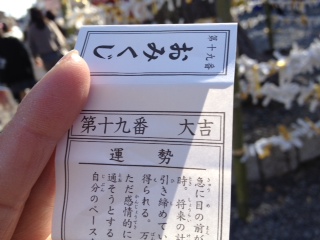 第十九番
おみくじ
第十九番 大吉
運勢
急に目の前が
時。将来の計
引き締めてい
得られる。万
ただ感情的に
通そうとする
自分のペース